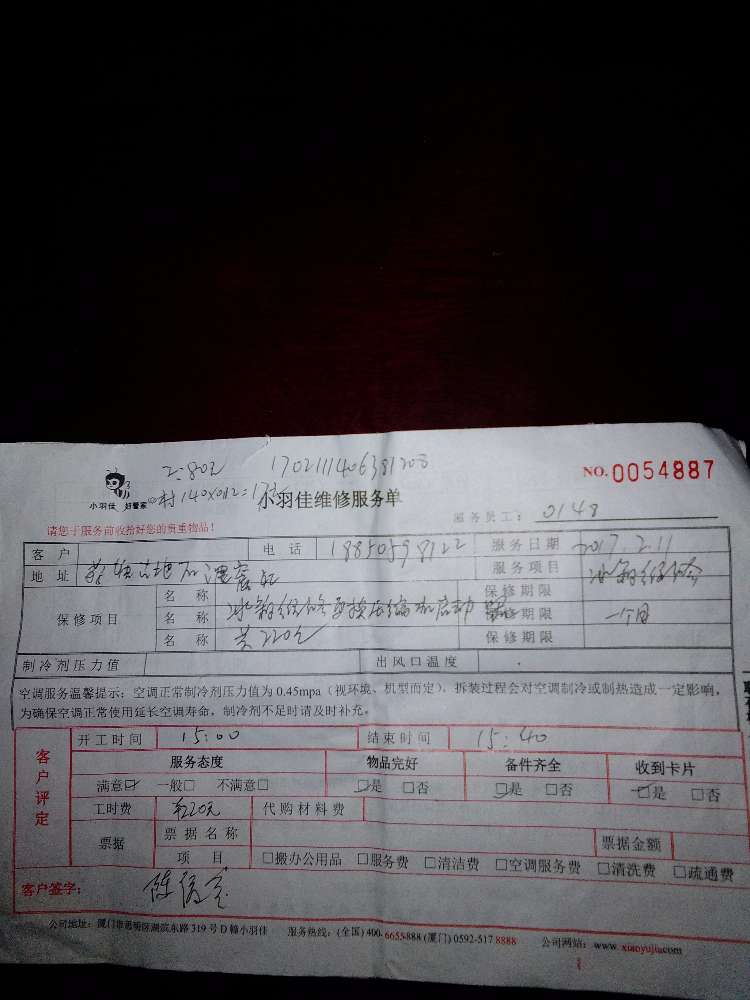 工:80元 1702111406381208
NO.0054887
小羽佳 好管家
材140×0.12=
小羽佳维修服务单
服务员工: 0148
请您于服务前收拾好您的贵重物品!
客户 电话 18850598122 服务日期 2017.2.11
地址 服务项目 冰箱维修
保修项目
名称 保修期限
名称 冰箱维修更换压缩机启动 保修期限 一个月
名称 共220元 保修期限
制冷剂压力值 出风口温度
空调服务温馨提示:空调正常制冷剂压力值为0.45mpa(视环境、机型而定)、拆装过程会对空调制冷或制热造成一定影响,
为确保空调正常使用延长空调寿命,制冷剂不足时请及时补充。
客户评定
开工时间 15:00 结束时间 15:40
服务态度 物品完好 备件齐全 收到卡片
满意☑ 一般□ 不满意□ ☑是 □否 ☑是 □否 ☑是 □否
工时费 220元 代购材料费
票据 票据名称 票据金额
项目 □搬办公用品 □服务费 □清洁费 □空调服务费 □清洗费 □疏通费
客户签字:
公司地址:厦门市思明区湖滨东路319号D幢小羽佳 服务热线:(全国)400-6655-888(厦门)0592-517 8888 公司网站:www.xiaoyujia.com